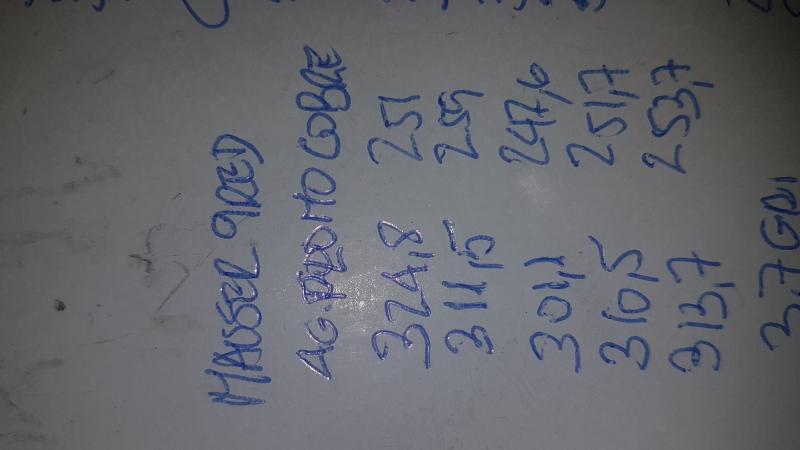 MAUSSER 9RED
AG. PLOMO COBRE
324,8 251
311,5 259
304,1 247,6
310,5 251,7
313,7 253,7
3,7 GRI